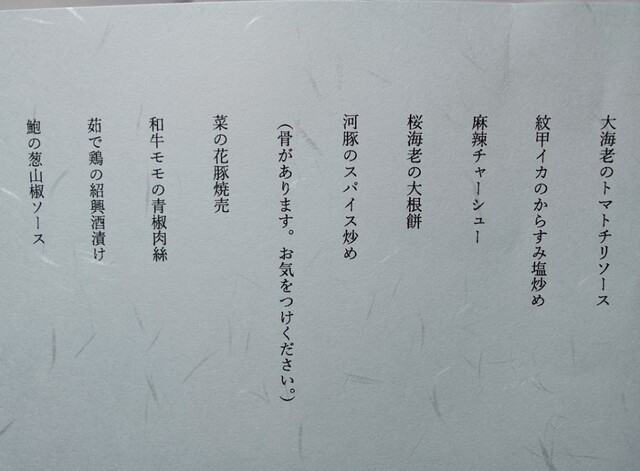 大海老のトマトチリソース
紋甲イカのからすみ塩炒め
麻辣チャーシュー
桜海老の大根餅
河豚のスパイス炒め
（骨があります。お気をつけください。）
菜の花豚焼売
和牛モモの青椒肉絲
茹で鶏の紹興酒漬け
鮑の葱山椒ソース